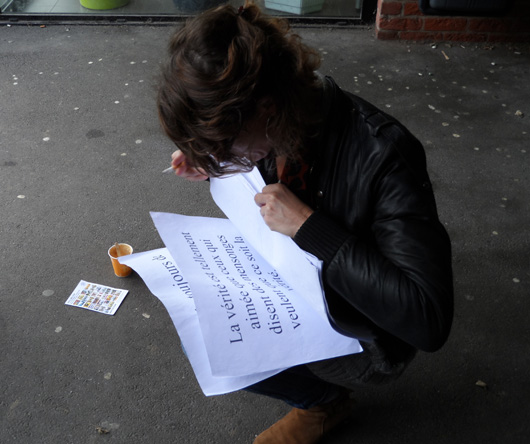 La vérité est tellement
aimée que ceux qui
disent des mensonges
veulent que ce soit la
vérité.
toujours